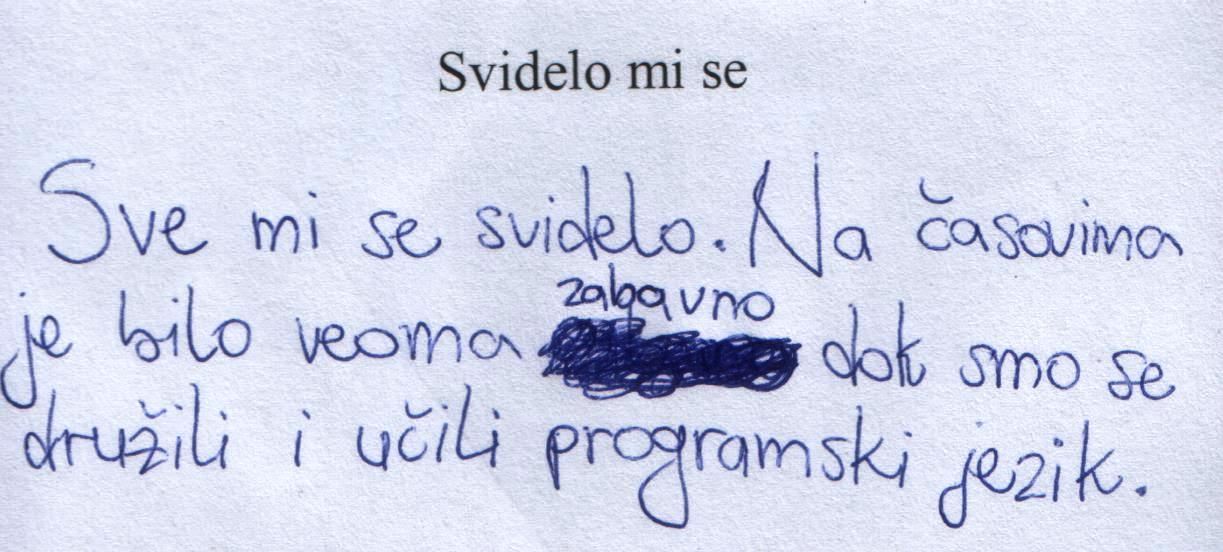 Svidelo mi se
Sve mi se svidelo. Na časovima
je bilo veoma zabavno dok smo se
družili i učili programski jezik.